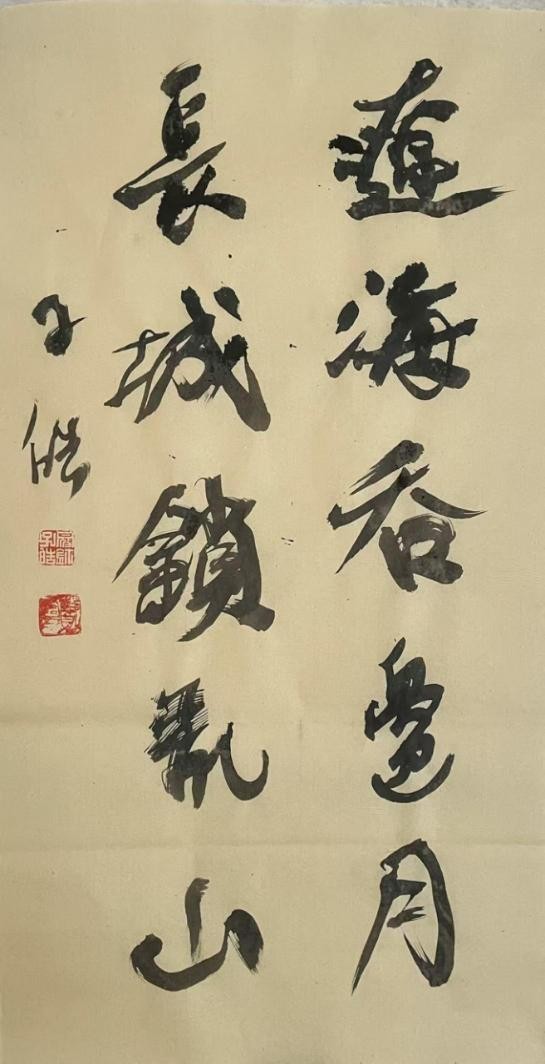 遼海吞邊月
長城鎖亂山
子皓